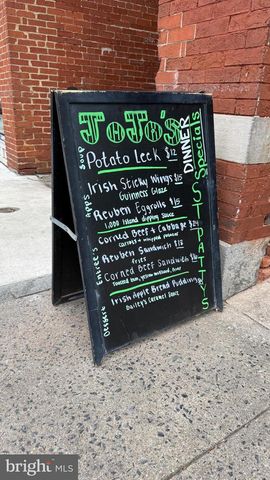 JoJo's
DINNER
Specials
ST. PATTYS
Soup
Potato Leek $12
Apps
Irish Sticky Wings $15
Guinness Glaze
Reuben Eggrolls $15
1,000 Island Dipping Sauce
Entree's
Corned Beef & Cabbage $24
Carrots + Whipped Potatoes
Reuben Sandwich $18
fries
Corned Beef Sandwich $18
Toasted Rye, yellow mustard, fries
Dessert
Irish Apple Bread Pudding
Bailey's Caramel Sauce
bright MLS